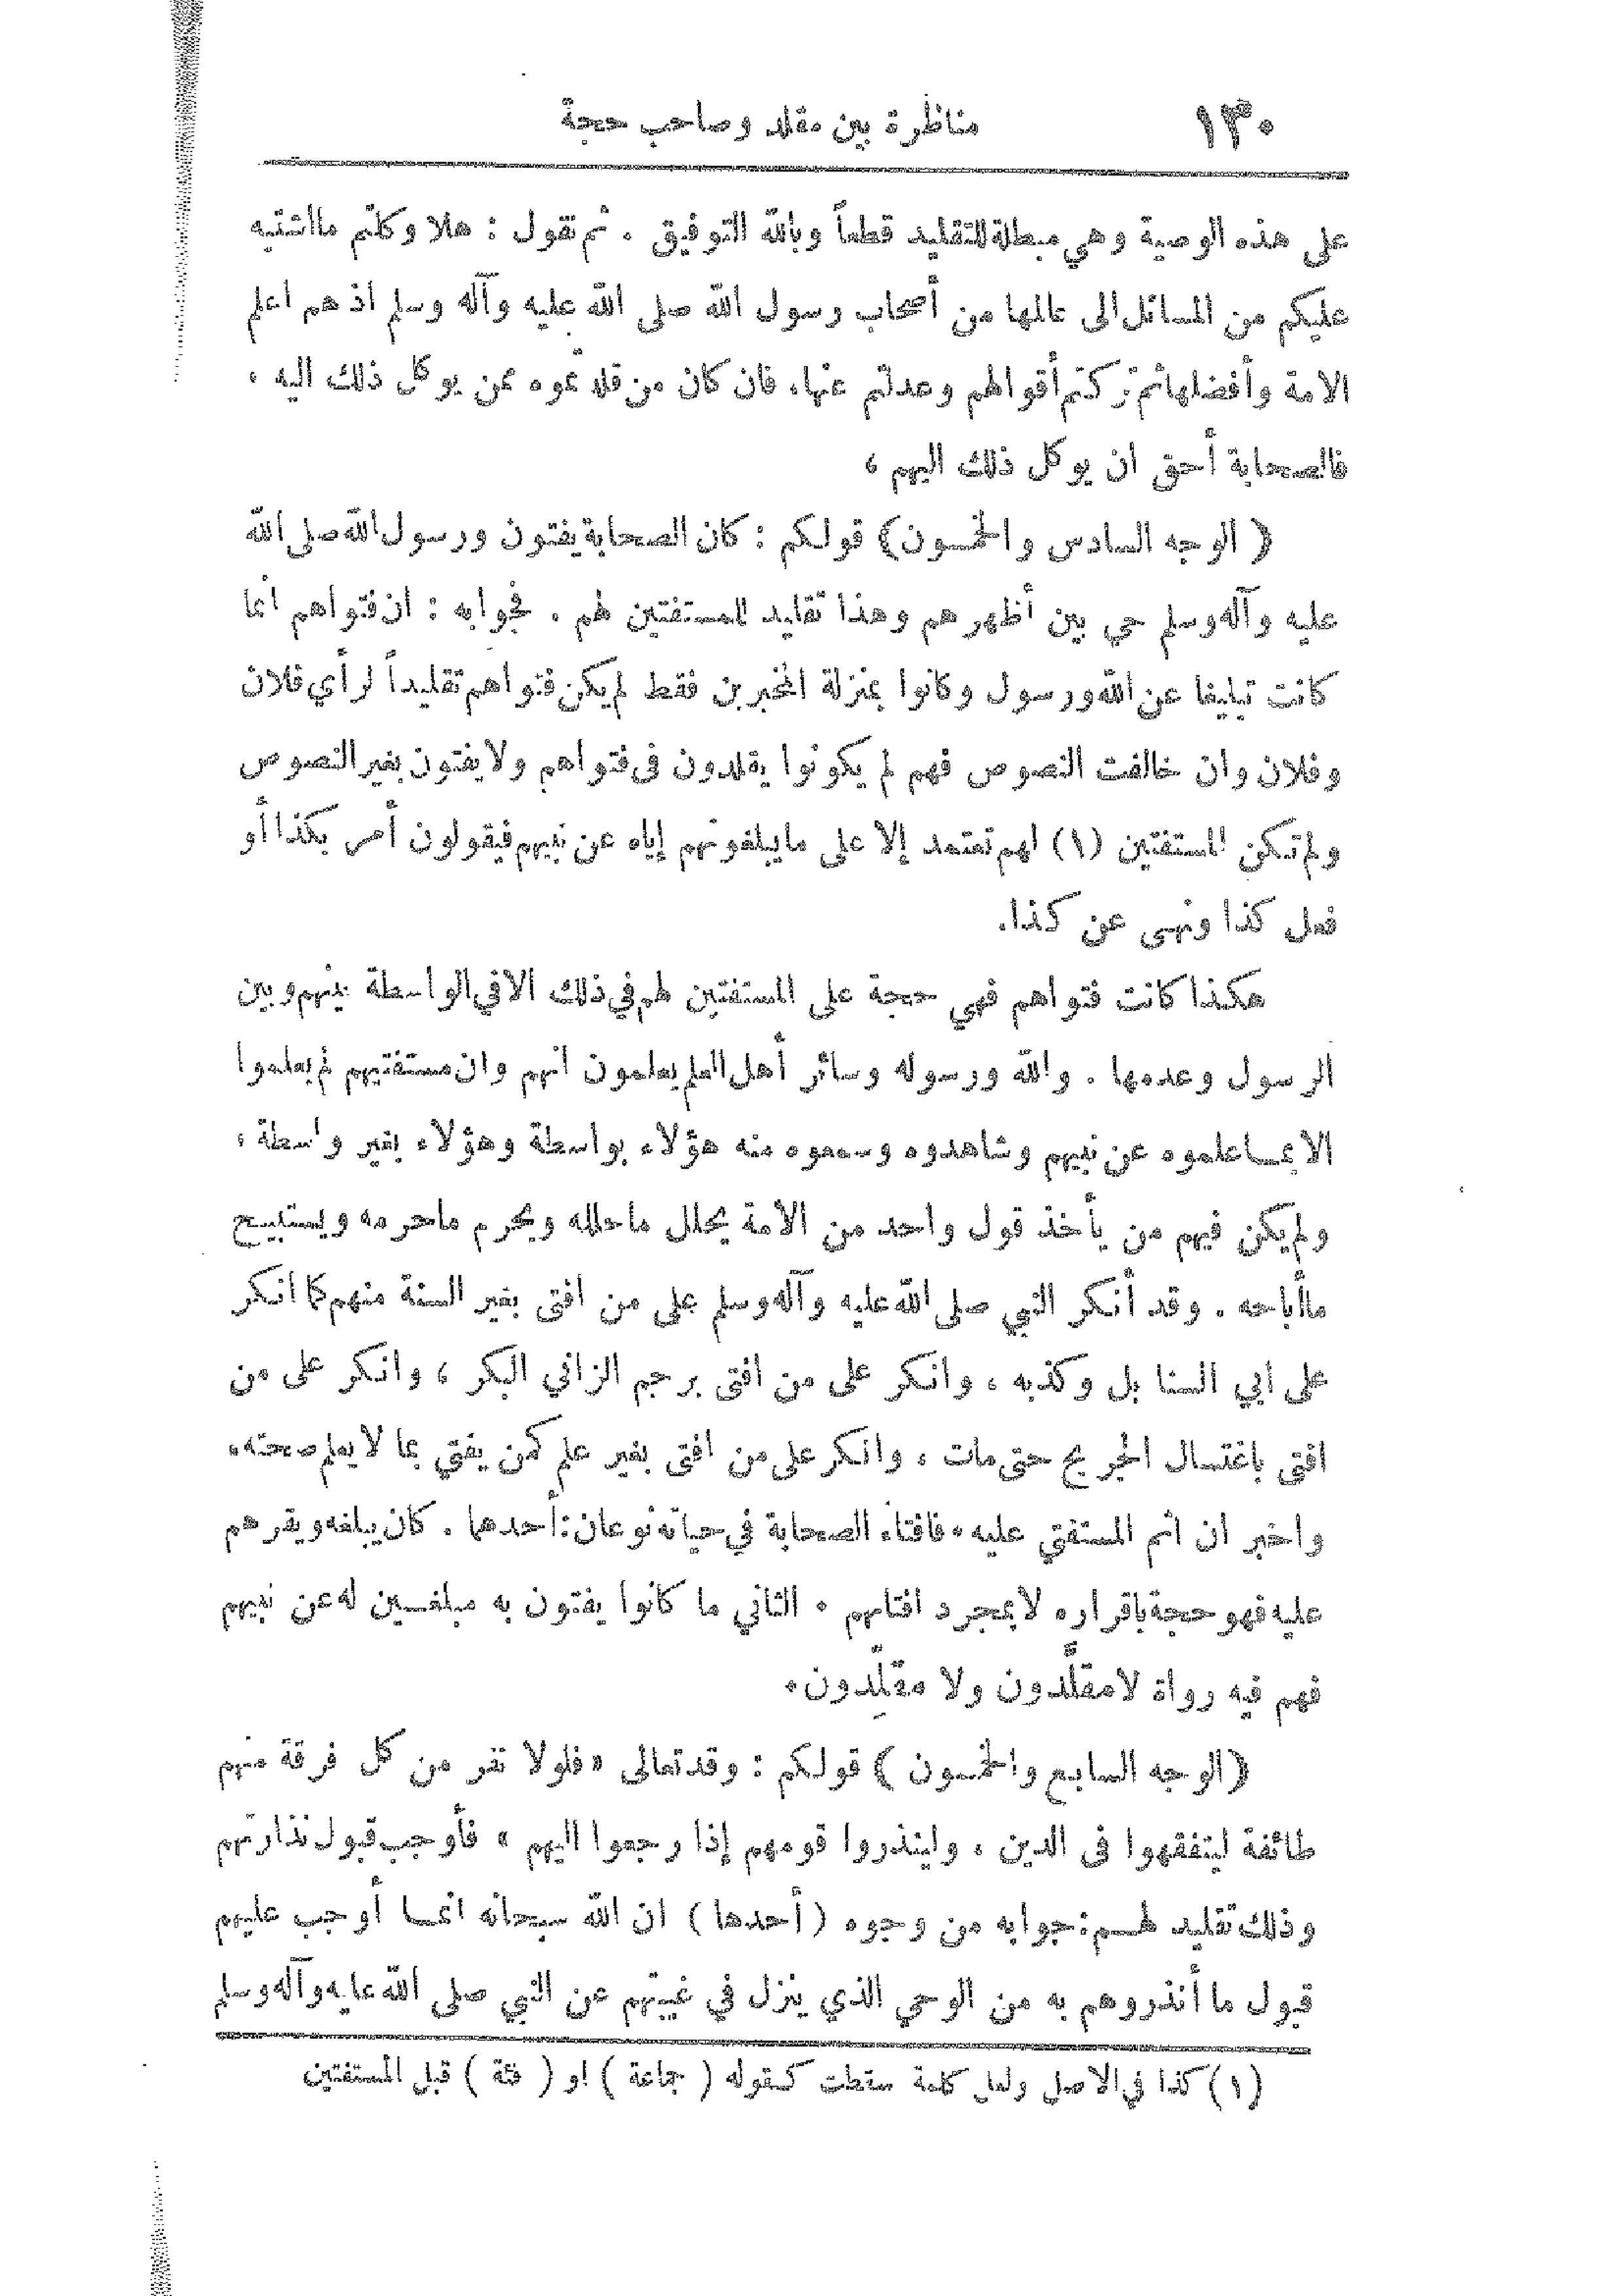 ١٣٠ مناظرة بين مقلد وصاحب حجة
على هذه الوصية وهي مبطلة للتقليد قطعاً وبالله التوفيق . ثم نقول : هلا وكلتم مااشتبه
عليكم من المسائل الى عالمها من أصحاب رسول الله صلى الله عليه وآله وسلم اذ هم اعلم
الامة وأفضلها ثم تركتم أقوالهم وعدلتم عنها، فان كان من قلدتموه ممن يوكل ذلك اليه ،
فالصحابة أحق ان يوكل ذلك اليهم ،
( الوجه السادس والخمسون) قولكم : كان الصحابة يفتون ورسول الله صلى الله
عليه وآله وسلم حي بين أظهرهم وهذا تقليد للمستفتين لهم . فجوابه : ان فتواهم انما
كانت تبليغا عن الله ورسول وكانوا بمنزلة المخبرين فقط لم يكن فتواهم تقليداً لرأي فلان
وفلان وان خالفت النصوص فهم لم يكونوا يقلدون فى فتواهم ولا يفتون بغير النصوص
ولم تكن المستفتين (١) لهم تعتمد إلا على ما يبلغونهم إياه عن نبيهم فيقولون أمر بكذا أو
فعل كذا ونهى عن كذا.
هكذا كانت فتواهم فهي حجة على المستفتين لهم في ذلك الا في الواسطة بينهم وبين
الرسول وعدمها . والله ورسوله وسائر أهل العلم يعلمون انهم وان مستفتيهم لم يعلموا
الا بمـا علموه عن نبيهم وشاهدوه وسمعوه منه هؤلاء بواسطة وهؤلاء بغير واسطة ،
ولم يكن فيهم من يأخذ قول واحد من الامة يحلل ما حلله ويحرم ماحرمه ويستبيح
ماأباحه . وقد أنكر النبي صلى الله عليه وآله وسلم على من افتى بغير السنة منهم كما انكر
على ابي السنابل وكذبه ، وانكر على من افتى برجم الزاني البكر ، وانكر على من
افتى باغتسال الجريح حتى مات ، وانكر على من افتى بغير علم كمن يفتي بما لا يعلم صحته،
واخبر ان اثم المستفتي عليه ، فافتاء الصحابة في حياته نوعان: أحدهما . كان يبلغه ويقرهم
عليه فهو حجة باقراره لا بمجرد افتائهم . الثاني ما كانوا يفتون به مبلغـين له عن نبيهم
فهم فيه رواة لا مقلَّدون ولا مقلِّدون.
(الوجه السابع والخمسون ) قولكم : وقد تعالى «فلولا نفر من كل فرقة منهم
طائفة ليتفقهوا فى الدين ، ولينذروا قومهم إذا رجعوا اليهم » فأوجب قبول نذارتهم
وذلك تقليد لهـم : جوابه من وجوه (أحدها) ان الله سبحانه انمـا أوجب عليهم
قبول ما أنذروهم به من الوحي الذي ينزل في غيبتهم عن النبي صلى الله عليه وآله وسلم
(١) كذا في الاصل ولعل كلمة سقطت كقوله ( جماعة ) او ( فئة ) قبل المستفتين